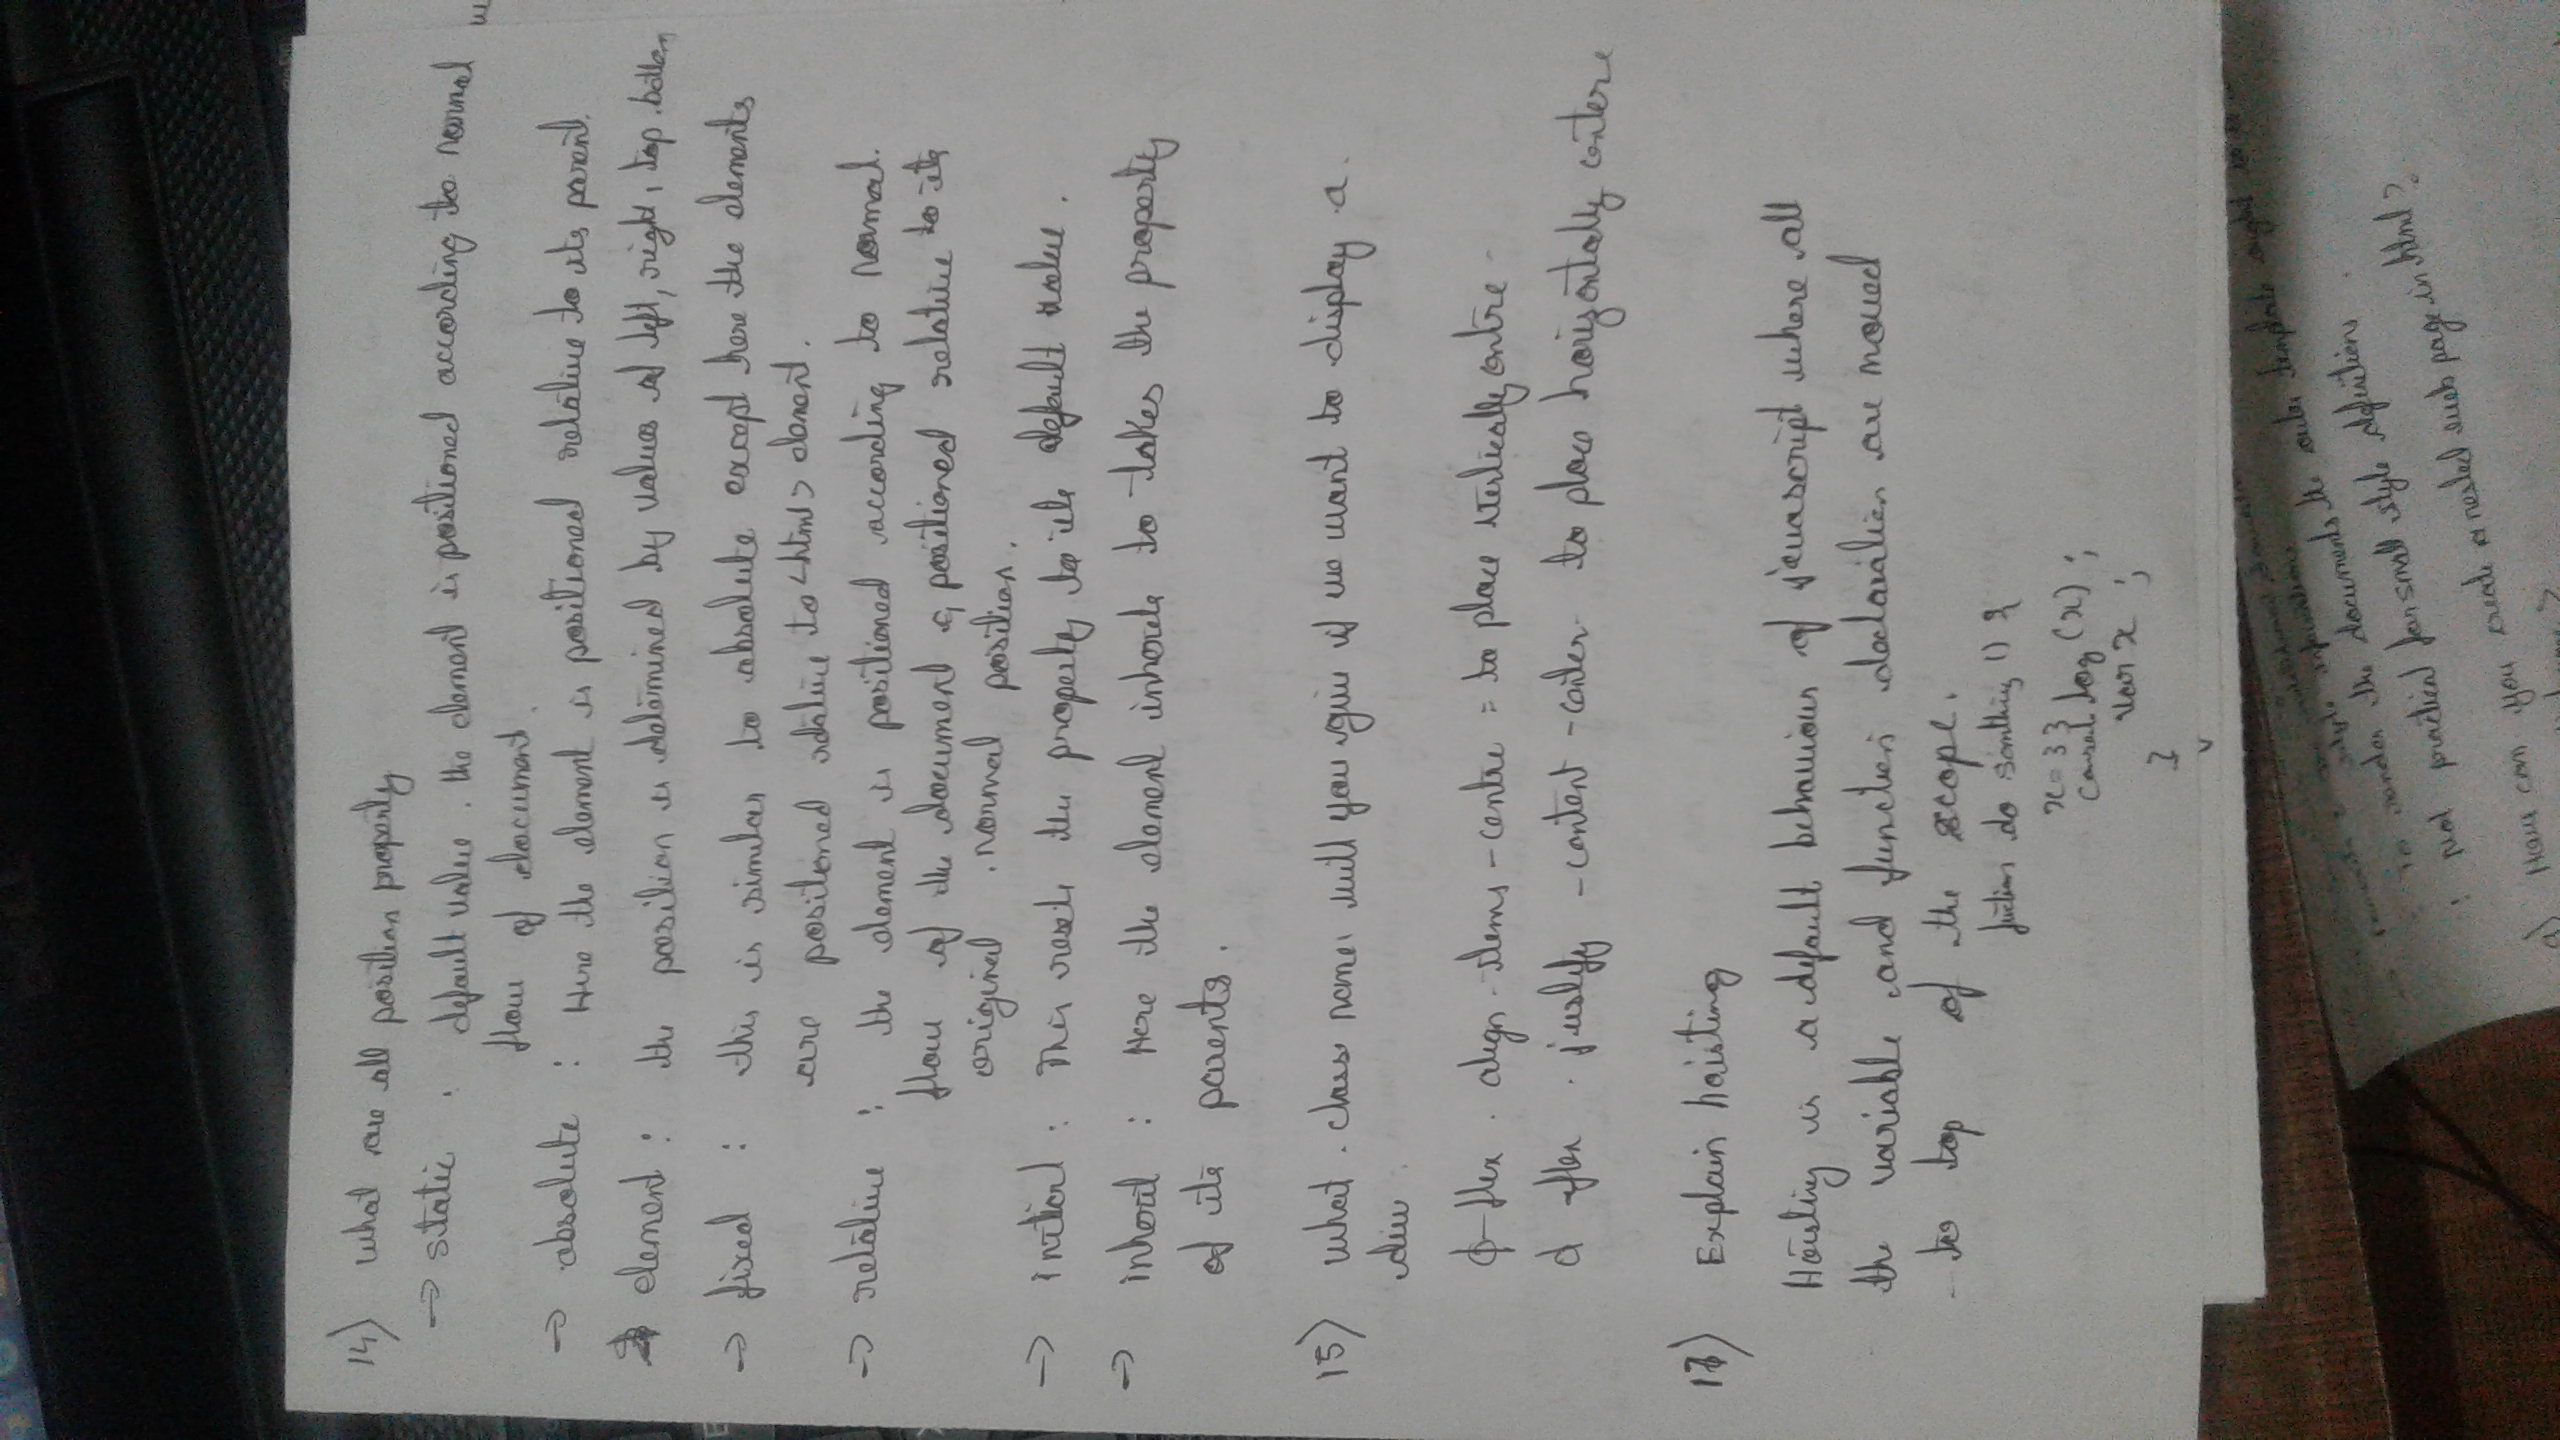 14) what are all position property
→ static : default value. the element is positioned according to normal
flow of document.
→ absolute : Here the element is positioned relative to its parent.
element : the position is determined by values of left, right, top. bottom
→ fixed : this is similar to absolute except here the elements
are positioned relative to <html> element.
→ relative : the element is positioned according to normal.
flow of the document & positioned relative to its
original normal position.
→ initial : This resets the property to its default value.
→ inherit : Here the element inherits to takes the property
of its parents.
15) what class name will you give if we want to display a
div
d-flex align-items-centre = to place vertically centre
d flex justify-content-center to place horizontally centere
17) Explain hoisting
Hoisting is a default behaviour of javascript where all
the variable and function declaration are moved
to top of the scope.
fuction do somthing () {
x=33
log (x) ;
var x ;
}
to render the documents the outer template ought to
Not practical for small style definitions
9) How can you create a nested web page in html?